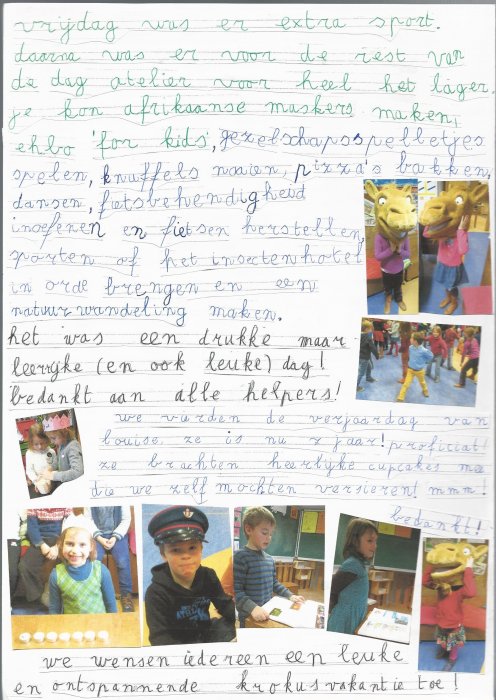 vrijdag was er extra sport.
daarna was er voor de rest van
de dag atelier voor heel het lager.
je kon afrikaanse maskers maken,
ehbo 'for kids', gezelschapsspelletjes
spelen, knuffels naaien, pizza's bakken,
dansen, fietsbehendigheid
inoefenen en fietsen herstellen,
sporten of het insectenhotel
in orde brengen en een
natuurwandeling maken.
het was een drukke maar
leerrijke (en ook leuke) dag!
bedankt aan alle helpers!
we vierden de verjaardag van
louise. ze is nu 7 jaar! proficiat!
ze brachten heerlijke cupcakes mee
die we zelf mochten versieren! mmm!
bedankt!
we wensen iedereen een leuke
en ontspannende krokusvakantie toe!